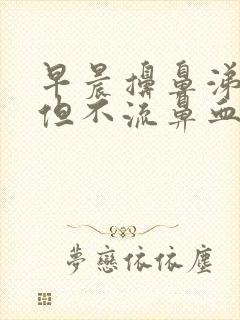 早晨擤鼻涕
但不流鼻血
梦恋依依尘